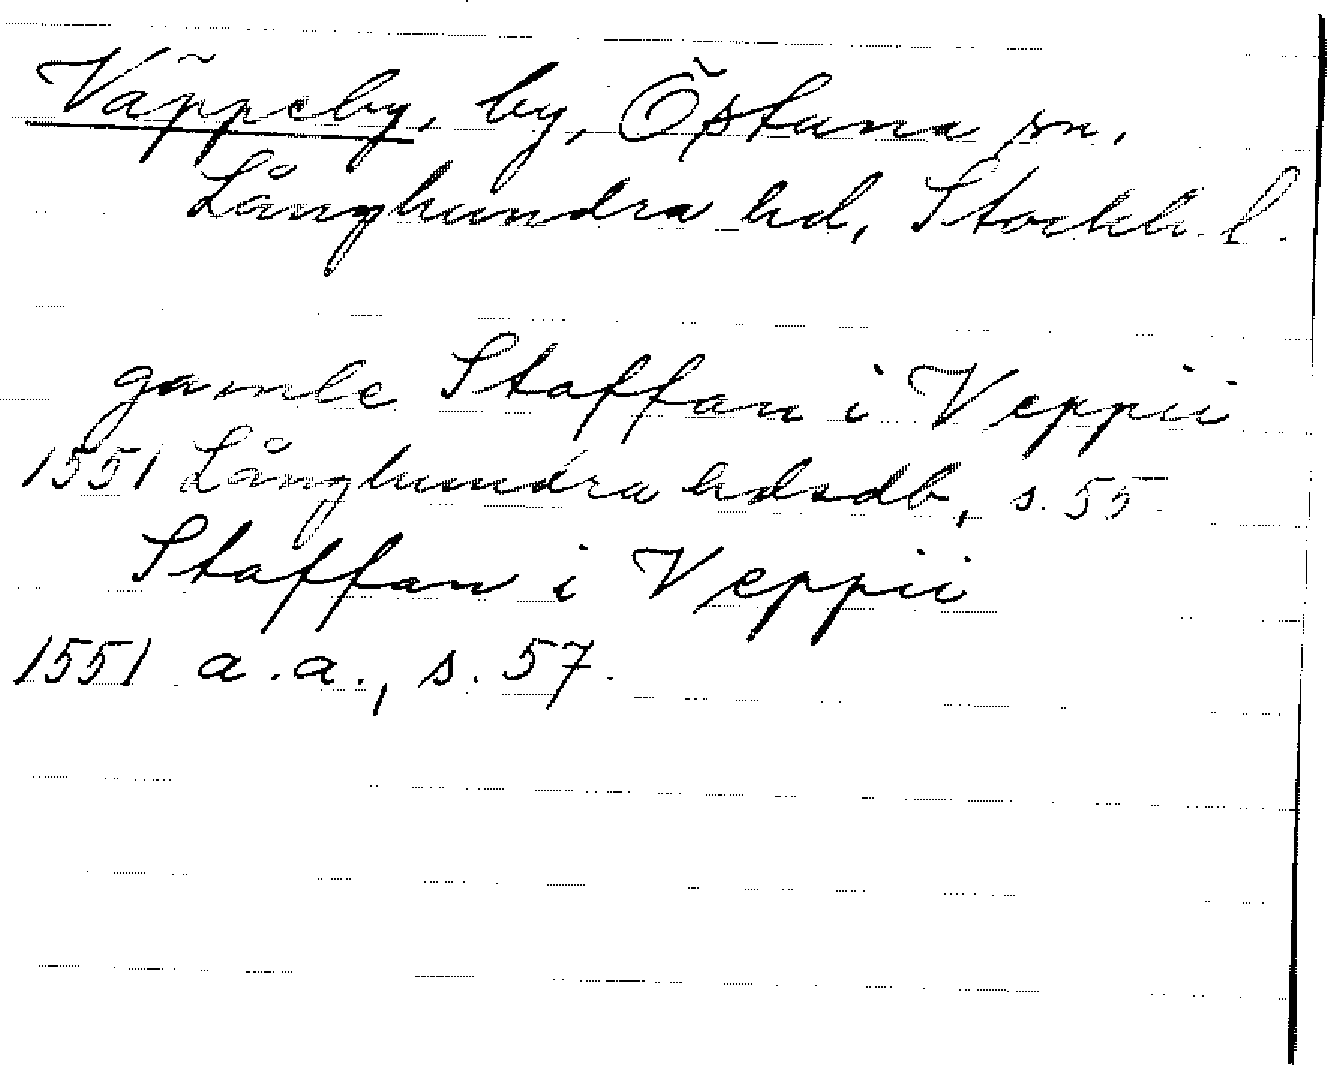 Väppeby, by, Östuna sn,
Långhundra hd, Stockh. l.
gamle Staffan i Veppii
1551 Långhundra hdsdb, s. 55
Staffan i Veppii
1551 a.a., s. 57.